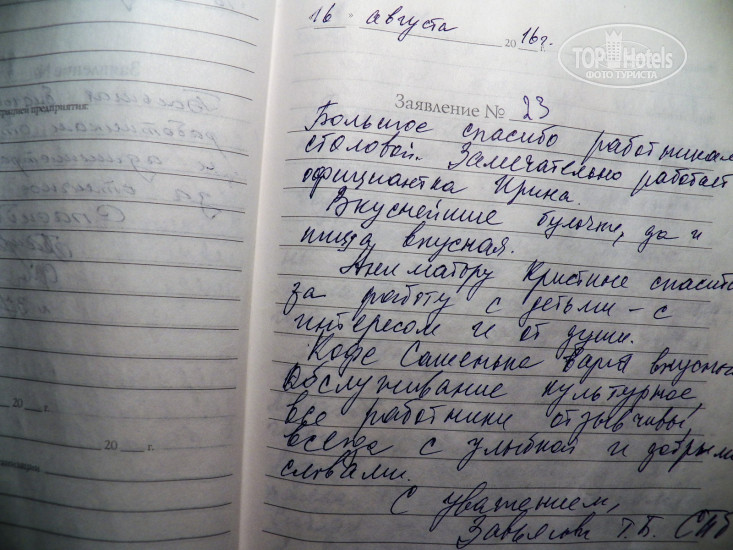 16 августа 2016 г.
TOPHotels
ФОТО ТУРИСТА
Заявление № 23
Большое спасибо работникам
столовой. Замечательно работает
официантка Ирина.
Вкуснейшие булочки, да и
пища вкусная.
Аниматору Кристине спасибо
за работу с детьми - с
интересом и от души.
Кофе Сашенька варит вкусный
Обслуживание культурное,
все работники отзывчивы,
всегда с улыбкой и добрыми
словами.
С уважением,
Т.Б. СПб
Заявление №
предприятия:
20 г.
20 г.